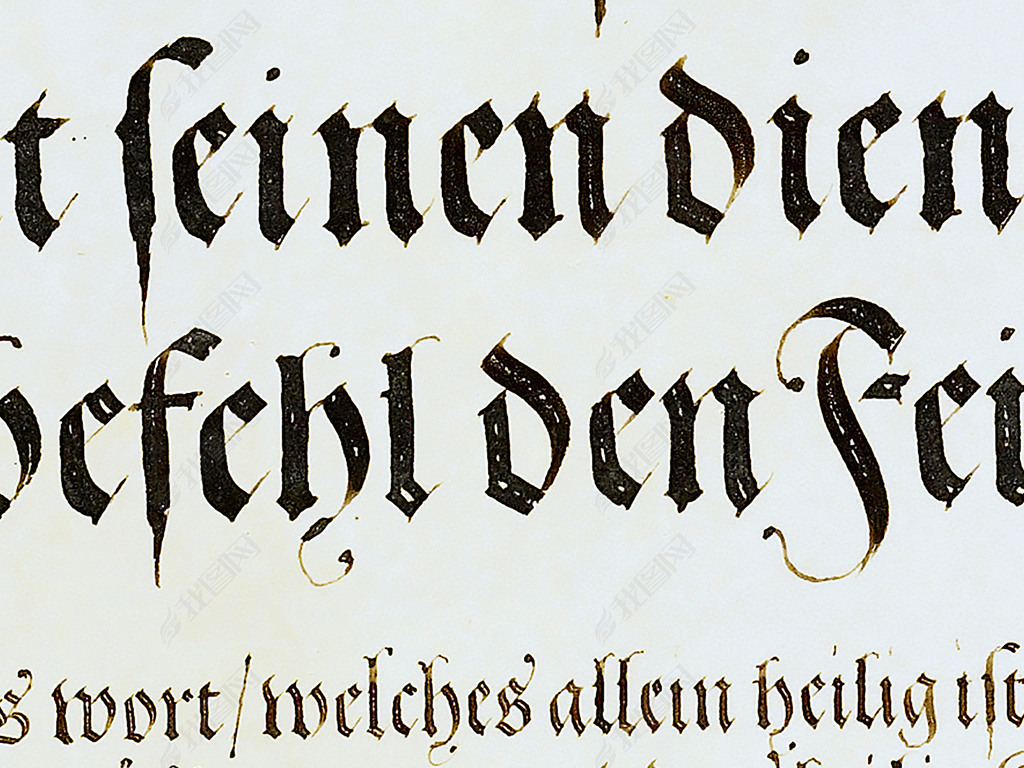 t ſeinen dien
befehl den Fei
s wort / welches allein heilig iſt